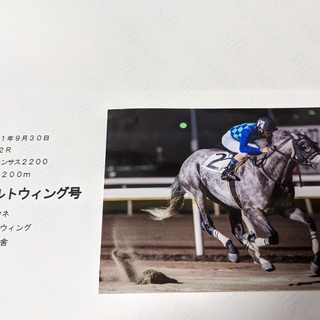 1年9月30日
2R
ンサス2200
200m
ルトウィング号
ウネ
ウィング
舎
2